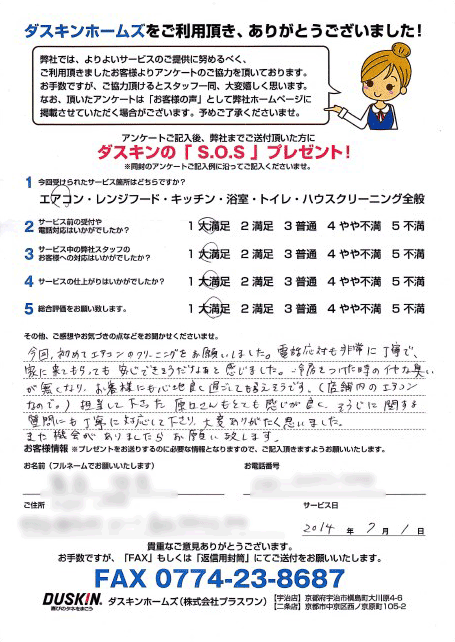 ダスキンホームズをご利用頂き、ありがとうございました！
弊社では、よりよいサービスのご提供に努めるべく、
ご利用頂きましたお客様よりアンケートのご協力を頂いております。
お手数ですが、ご協力頂けるとスタッフ一同、大変嬉しく思います。
なお、頂いたアンケートは「お客様の声」として弊社ホームページに
掲載させていただく場合がございます。予めご了承くださいませ。
アンケートご記入後、弊社までご送付頂いた方に
ダスキンの「 S.O.S 」プレゼント！
※同封のアンケートご記入例に沿ってご記入くださいませ。
1 今回受けられたサービス箇所はどちらですか？
エアコン・レンジフード・キッチン・浴室・トイレ・ハウスクリーニング全般
2 サービス前の受付や
電話対応はいかがでしたか？ 1 大満足 2 満足 3 普通 4 やや不満 5 不満
3 サービス中の弊社スタッフの
お客様への対応はいかがでしたか？ 1 大満足 2 満足 3 普通 4 やや不満 5 不満
4 サービスの仕上がりはいかがでしたか？ 1 大満足 2 満足 3 普通 4 やや不満 5 不満
5 総合評価をお願い致します。 1 大満足 2 満足 3 普通 4 やや不満 5 不満
その他、ご感想やお気づきの点などをお聞かせくださいませ。
今回、初めてエアコンのクリーニングをお願いしました。電話応対も非常に丁寧で、
家に来てもらっても安心できそうだなぁと感じました。冷房をつけた時のイヤな臭い
が無くなり、お客様にも心地良く過ごしてもらえそうです。（店舗内のエアコン
なので。）担当して下さった原口さんもとても感じが良く、そうじに関する
質問にも丁寧に対応して下さり、大変ありがたく思いました。
また機会がありましたらお願い致します。
お客様情報 ※プレゼントをお送りするのに必要な情報となりますので、ご記入頂きますようお願いします。
お名前（フルネームでお願いいたします） お電話番号
ご住所 サービス日
2014 年 7 月 1 日
貴重なご意見ありがとうございます。
お手数ですが、「FAX」もしくは「返信用封筒」にてご送付をお願いいたします。
FAX 0774-23-8687
DUSKIN 喜びのタネをまこう ダスキンホームズ（株式会社プラスワン） [宇治店] 京都府宇治市槇島町大川原4-6
[二条店] 京都市中京区西ノ京原町105-2